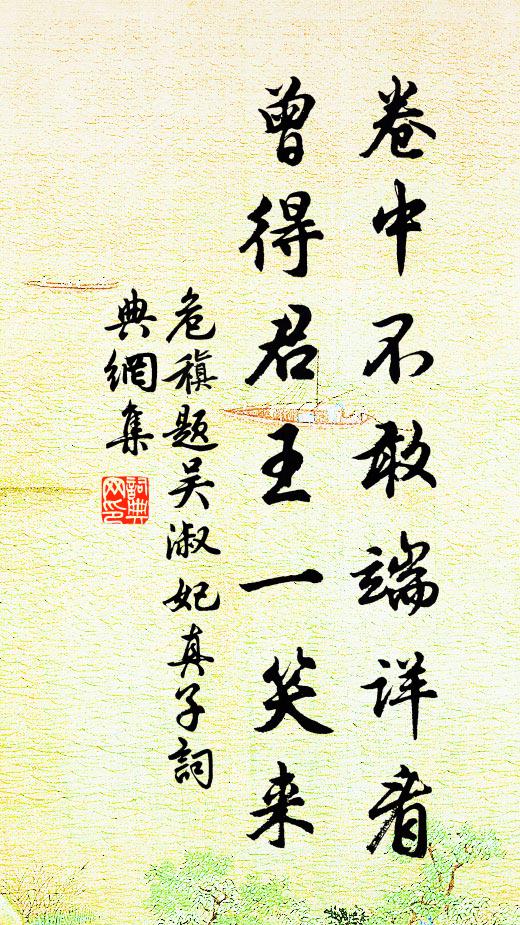 卷中不敢端详看
曾得君王一笑来
危稹题吴淑妃真子詞
典網集
詞典
网印